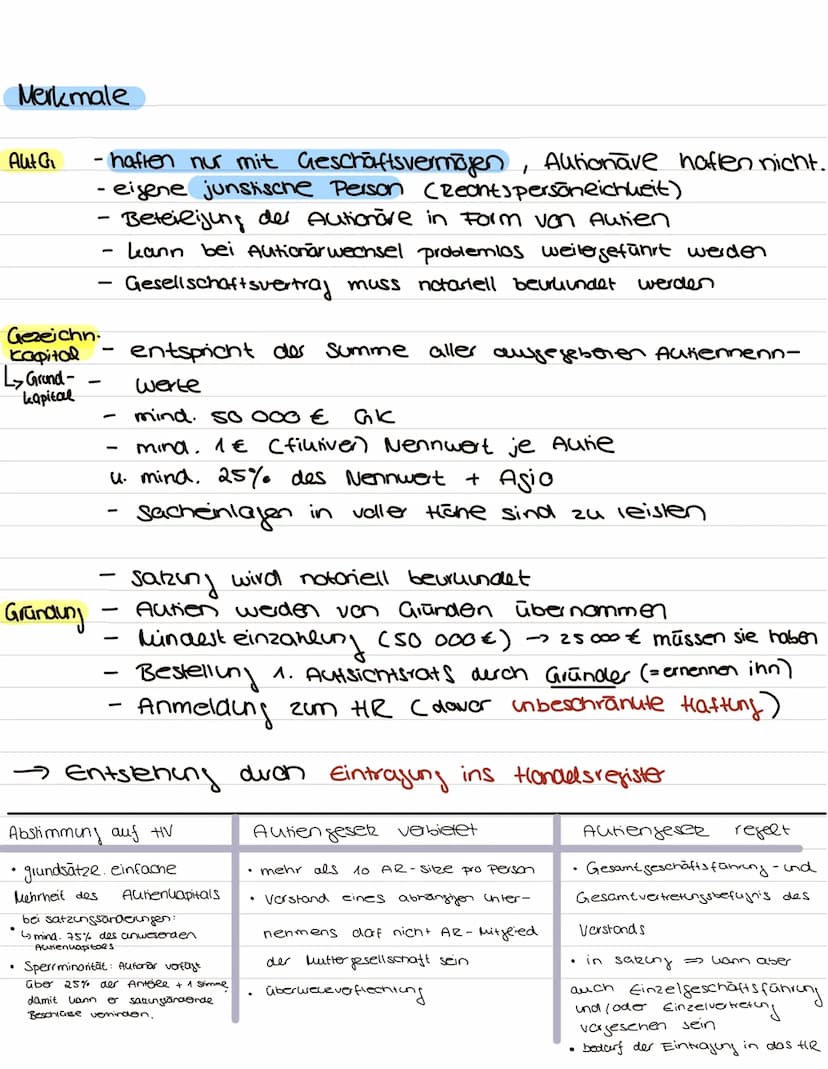 Merkmale
AktG - haften nur mit Geschäftsvermögen, Aktionäre haften nicht.
- eigene juristische Person (Rechtspersöneichkeit)
- Beteiligung der Aktionäre in Form von Aktien
- kann bei Aktionärwechsel problemlos weitergeführt werden
- Gesellschaftsvertrag muss notariell beurkundet werden
Gezeichn.
Kapital - entspricht der Summe aller ausgegebenen Aktiennenn-
↳ Grund- - werte
kapital
- mind. 50 000 € GK
- mind. 1 € (fiktiver) Nennwert je Aktie
u. mind. 25% des Nennwert + Agio
- Sacheinlagen in voller Höhe sind zu leisten
- Satzung wird notariell beurkundet
Gründung - Aktien werden von Gründen übernommen
- Mindesteinzahlung (50 000 €) → 25 000 € müssen sie haben
- Bestellung 1. Aufsichtsrats durch Gründer (= ernennen ihn)
- Anmeldung zum HR (davor unbeschränkte Haftung)
→ Entstehung durch Eintragung ins Handelsregister
Abstimmung auf HV
• grundsätz. einfache
Mehrheit des Aktienkapitals
bei Satzungsänderungen:
• ↳ mind. 75% des anwesenden
Aktienkapitals
• Sperrminorität: Aktionär verfügt
über 25% der Anteile + 1 Stimme,
damit kann er satzungändernde
Beschlüsse verhindern.
Aktiengesetz verbietet
• mehr als 10 AR-Sitze pro Person
• Vorstand eines abhängigen Unter-
nehmens darf nicht AR-Mitglied
der Muttergesellschaft sein
• überkreuzverflechtung
Aktiengesetz regelt
• Gesamtgeschäftsführung- und
Gesamtvertretungsbefugnis des
Vorstands
• in Satzung ⇒ kann aber
auch Einzelgeschäftsführung
und/oder Einzelvertretung
vorgesehen sein
• bedarf der Eintragung in das HR